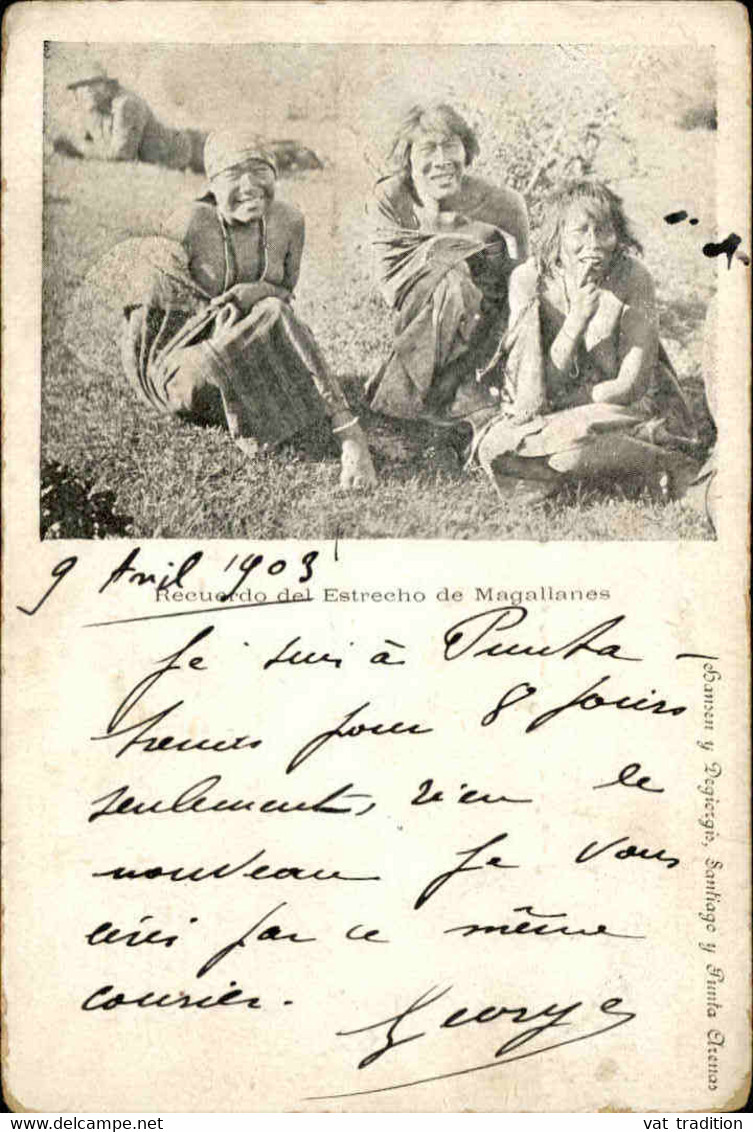 9 Avril 1903
Recuerdo del Estrecho de Magallanes
Je suis à Punta-
Arenas pour 8 jours
seulement, rien de
nouveau Je vous
écris par ce même
courier.
George
Hansen y Degiorgis, Santiago y Punta Arenas
vat tradition